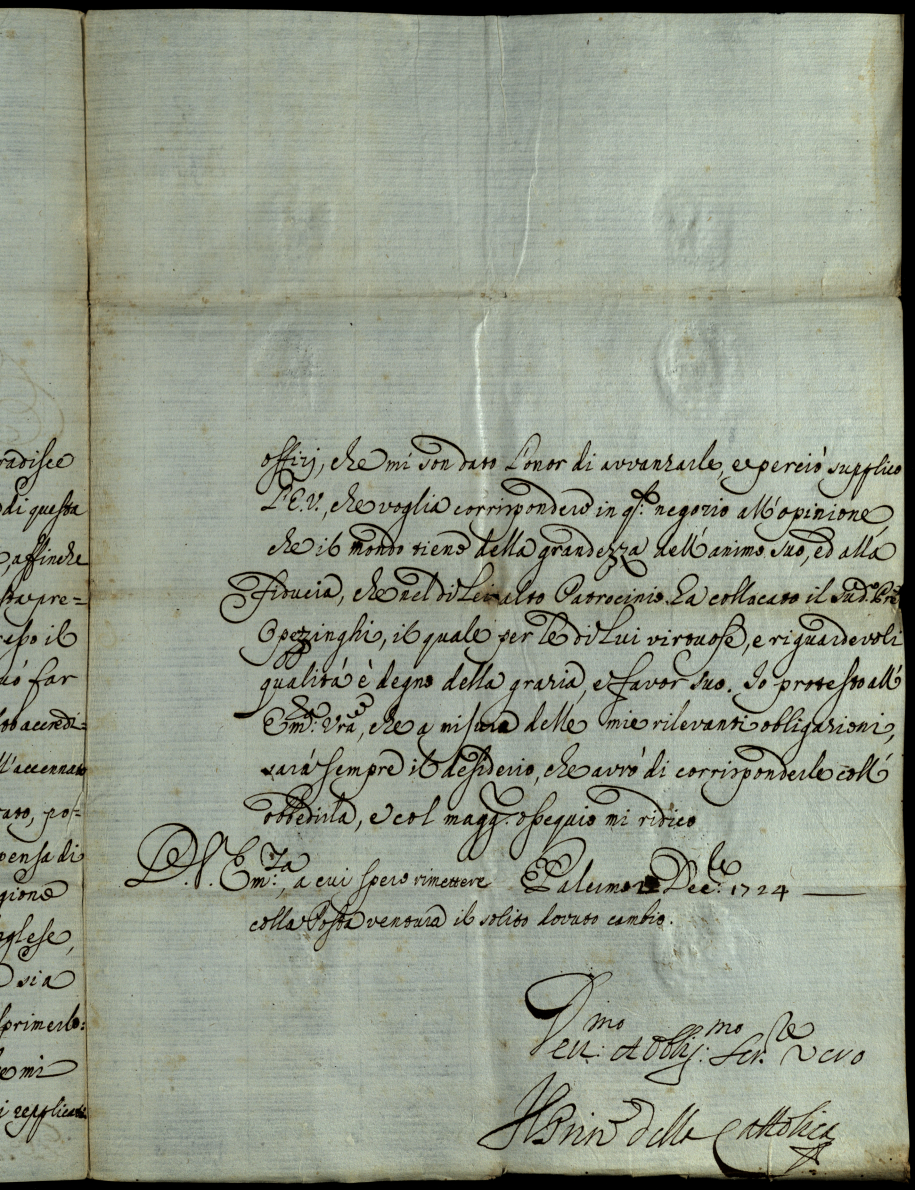 radisce
di questa
, affinche
sta pre=
esso il
uó far
to accredi=
ll'accennato
ato, po=
pensa di
gione
nglese,
sia
sprimerlo:
e mi
i repplicati
offizij, che mi son dato l'onor di avvanzarle, e perció supplico
L'E.V., che voglia corrispondere in q.to negozio all'opinione
che il mondo tiene della grandezza dell'animo suo, ed alla
Fiducia, che nel di Lei alto Patrocinio ha collocato il Sud.o Pre
Opezzinghi, il quale per le di Lui virtuose, e riguardevoli
qualitá é degno della grazia, e favor suo. Io protesto all'
Em.za Vra, che a misura delle mie rilevanti obligazioni,
sará sempre il desiderio, che avró di corrisponderle coll'
obbedirla, e col magg.r ossequio mi ridico
D. V. Em.za, a cui spero rimettere Palermo Dec.le 1724
colla Posta ventura il solito dovuto cambio.
Dev.mo et Obblig.mo Ser.re Vero
Il Prin.e della Cattolica